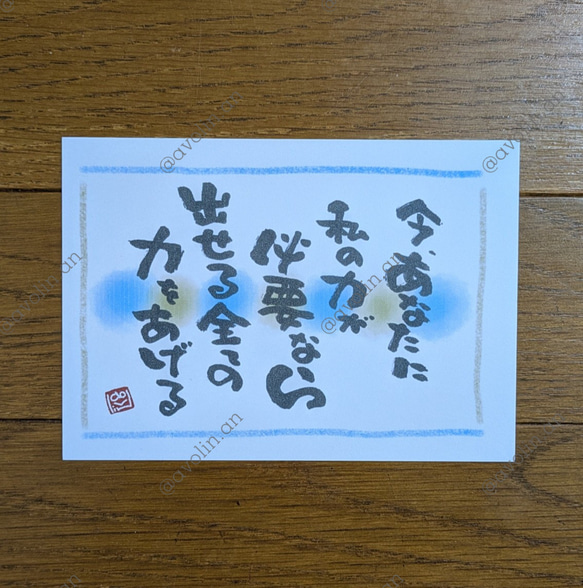 今、あなたに
私の力が
必要なら
出せる全ての
力をあげる
@avolin.an
@avolin.an
@avolin.an
@avolin.an
@avolin.an